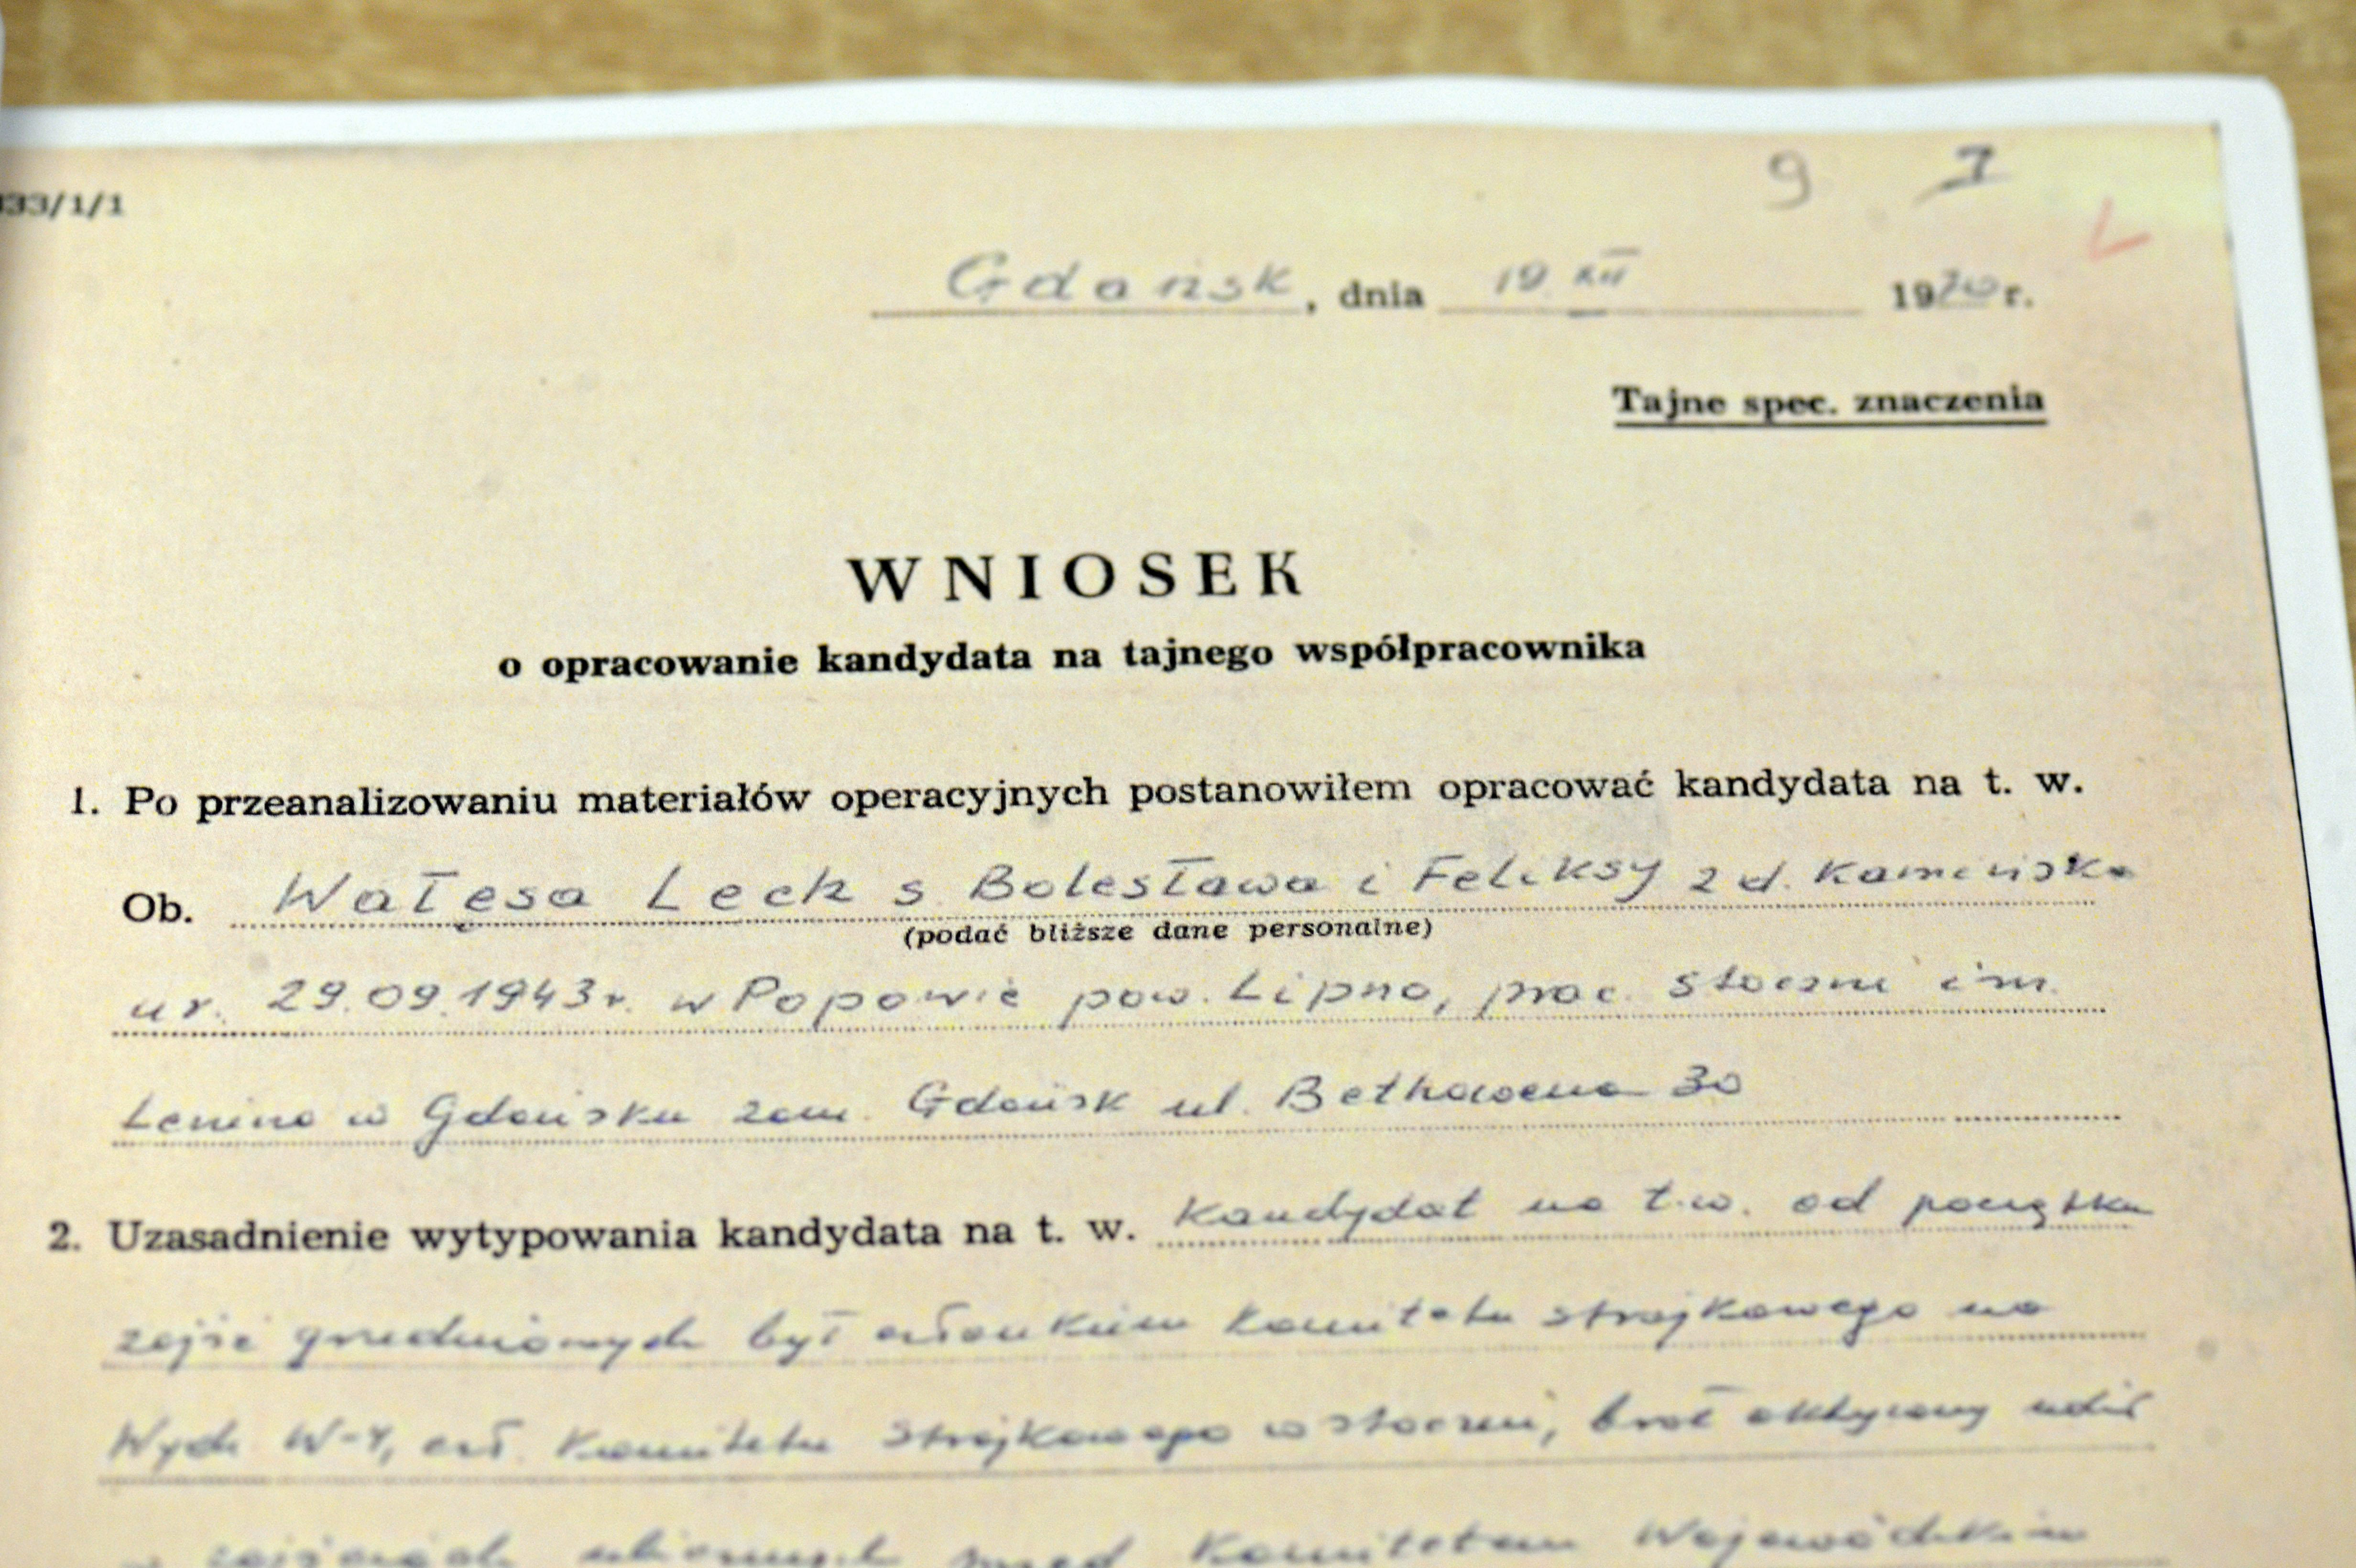 33/1/1
9 7
Gdańsk, dnia 19 XII 1970 r.
Tajne spec. znaczenia
WNIOSEK
o opracowanie kandydata na tajnego współpracownika
1. Po przeanalizowaniu materiałów operacyjnych postanowiłem opracować kandydata na t. w.
Ob. Wałęsa Lech s. Bolesława i Feliksy z d. Kamieńska
(podać bliższe dane personalne)
ur. 29.09.1943 r. w Popowie pow. Lipno, prac. stoczni im.
Lenina w Gdańsku zam. Gdańsk ul. Bethowena 30
2. Uzasadnienie wytypowania kandydata na t. w. Kandydat na t.w. od początku
zajść grudniowych był członkiem Komitetu Strajkowego na
Wydz W-4, czł. Komitetu Strajkowego w stoczni, brał aktywny udział
w zajściach ulicznych przed Komitetem Wojewódzkim